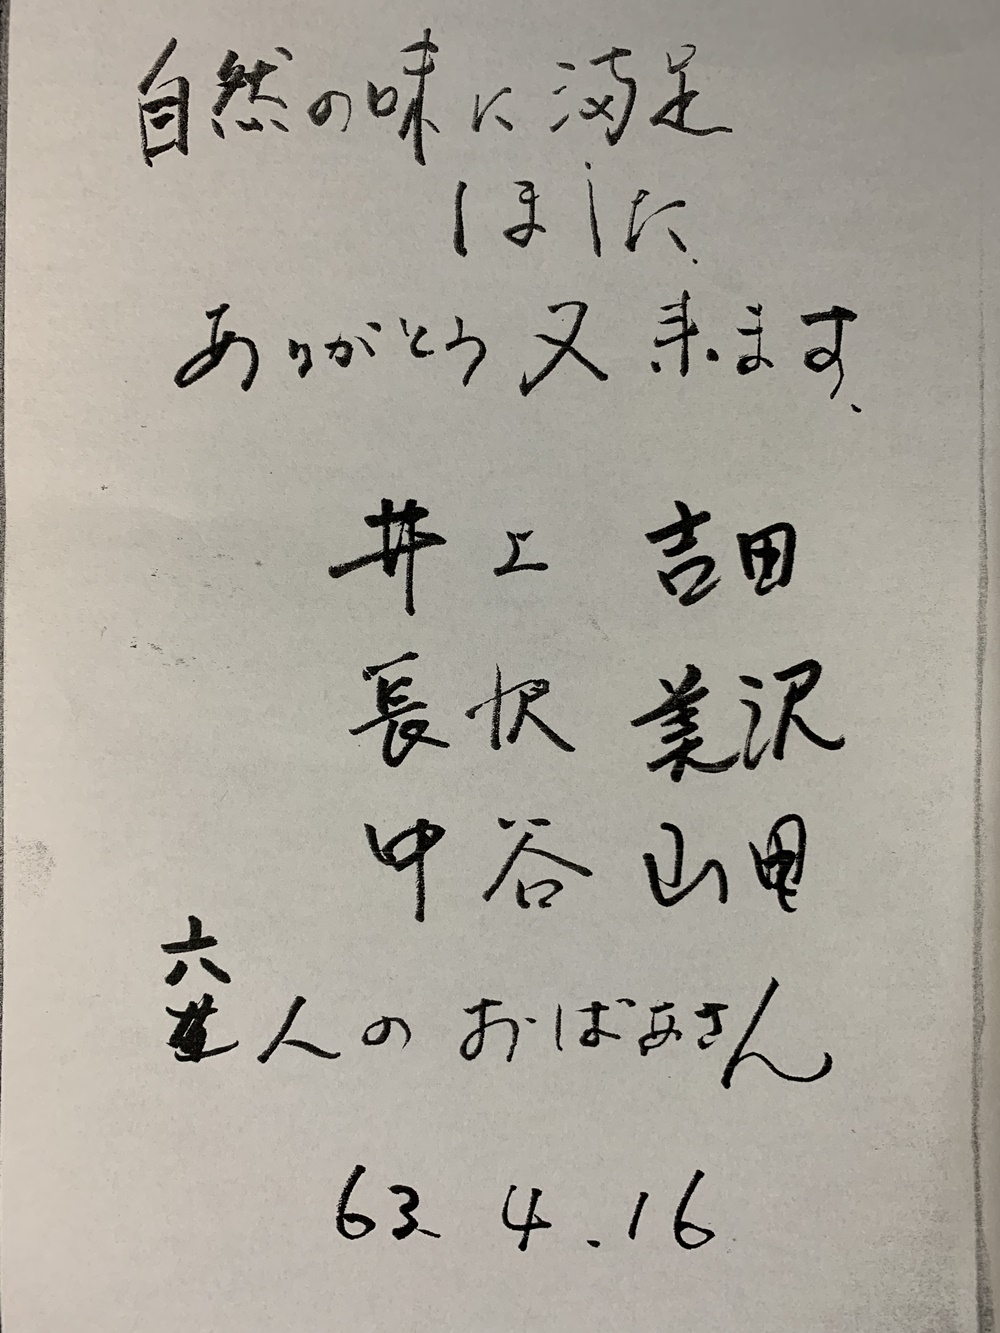 自然の味に満足
しました、
ありがとう又来ます、
井上 吉田
長沢 美沢
中谷 山田
六
人のおばあさん
63 4.16